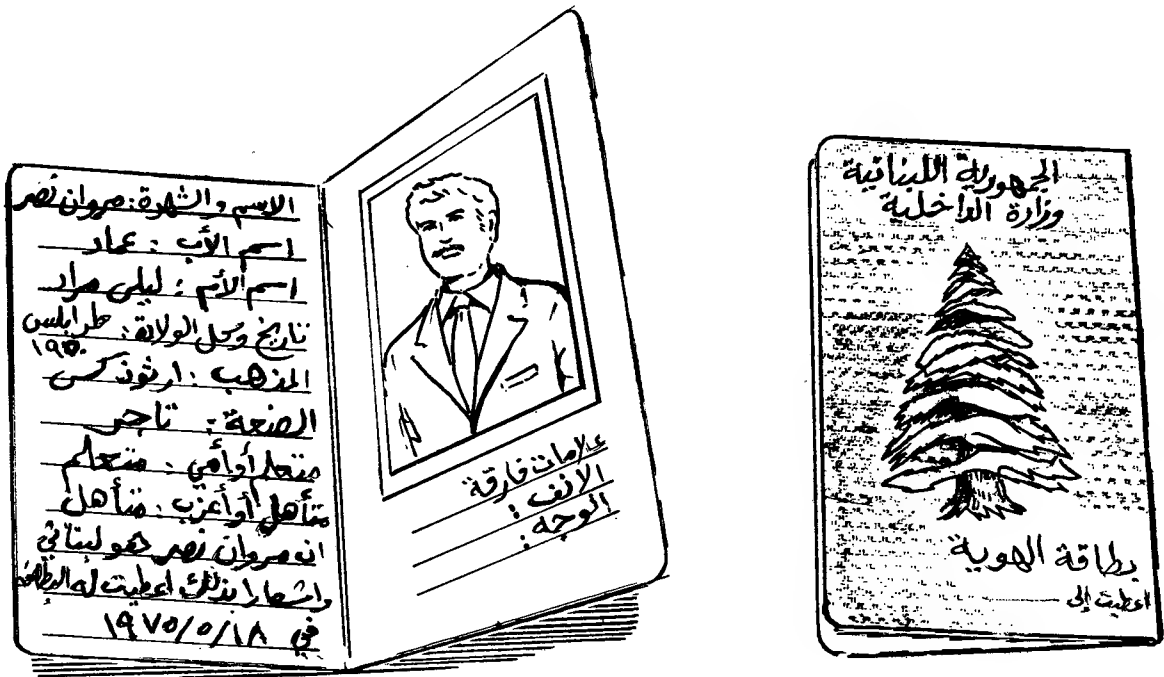 الاسم والشهرة: مروان نصر
اسم الأب : عماد
اسم الأم : ليلى مراد
تاريخ ومحل الولادة: طرابلس
١٩٥٠
المذهب : ارثوذكسي
الصنعة : تاجر
متعلم أو أمي : متعلم
متأهل أو أعزب : متأهل
ان مروان نصر هو لبناني
واشعارا بذلك اعطيت له البطاقة
في ١٩٧٥/٥/١٨
علامات فارقة
الانف :
الوجه :
الجمهورية اللبنانية
وزارة الداخلية
بطاقة الهوية
اعطيت إلى